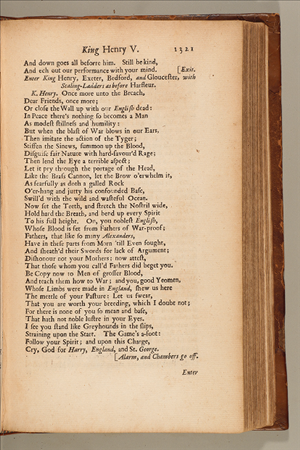 King Henry V. 1321
And down goes all before him. Still be kind,
And ech out our performance with your mind. [Exit.
Enter King Henry, Exeter, Bedford, and Gloucester, with
Scaling-Ladders as before Harfleur.
K. Henry. Once more unto the Breach,
Dear Friends, once more;
Or close the Wall up with our English dead:
In Peace there's nothing so becomes a Man
As modest stillness and humility:
But when the blast of War blows in our Ears,
Then imitate the action of the Tyger;
Stiffen the Sinews, summon up the Blood,
Disguise fair Nature with hard-favour'd Rage;
Then lend the Eye a terrible aspect;
Let it pry through the portage of the Head,
Like the Brass Cannon, let the Brow o'erwhelm it,
As fearfully as doth a galled Rock
O'er-hang and jutty his confounded Base,
Swill'd with the wild and wasteful Ocean.
Now set the Teeth, and stretch the Nostril wide,
Hold hard the Breath, and bend up every Spirit
To his full height. On, you noblest English,
Whose Blood is fet from Fathers of War-proof;
Fathers, that like so many Alexanders,
Have in these parts from Morn 'till Even fought,
And sheath'd their Swords for lack of Argument;
Dishonour not your Mothers; now attest,
That those whom you call'd Fathers did beget you.
Be Copy now to Men of grosser Blood,
And teach them how to War; and you, good Yeomen,
Whose Limbs were made in England, shew us here
The mettle of your Pasture: Let us swear,
That you are worth your breeding, which I doubt not;
For there is none of you so mean and base,
That hath not noble lustre in your Eyes.
I see you stand like Greyhounds in the slips,
Straining upon the Start. The Game's a-foot:
Follow your Spirit; and upon this Charge,
Cry, God for Harry, England, and St. George.
[Alarm, and Chambers go off.
Enter